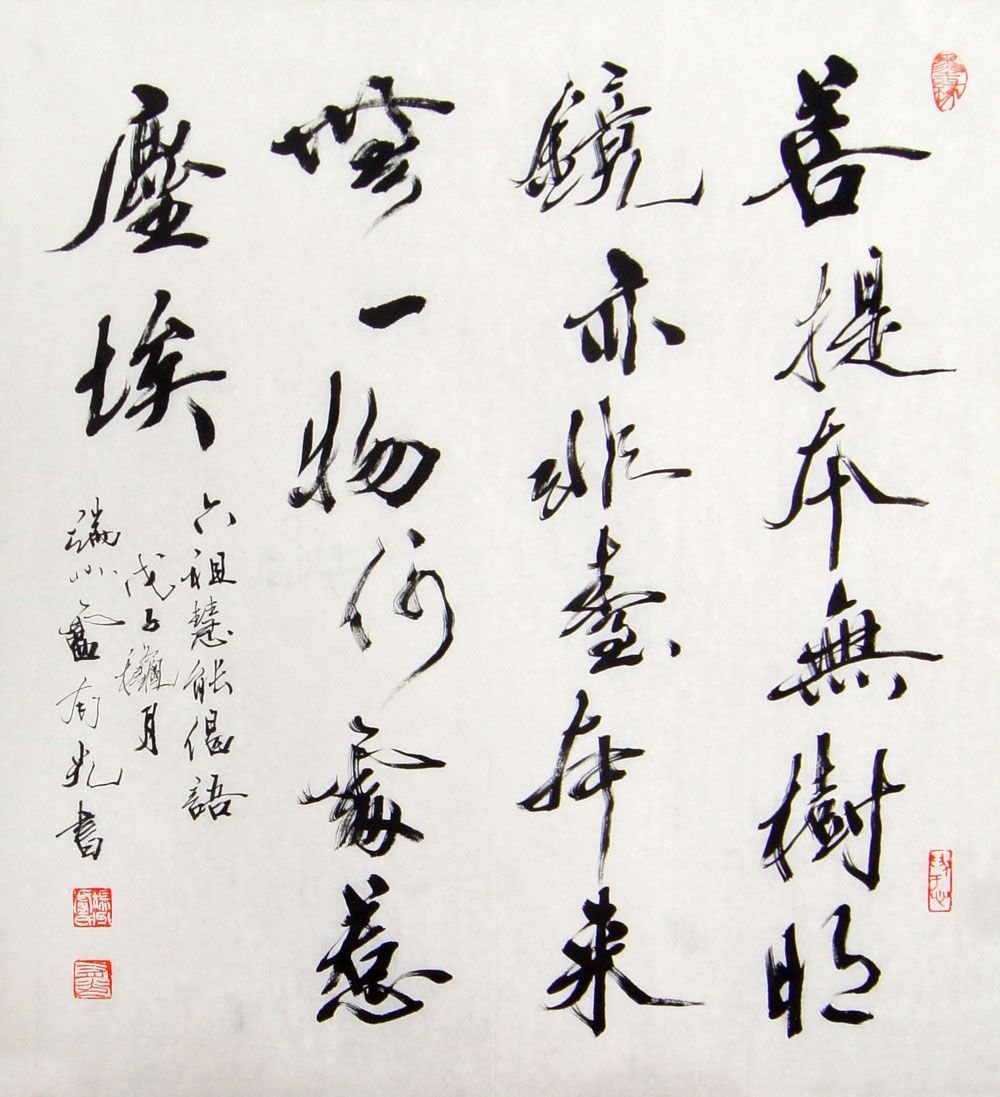 菩提本無樹明
鏡亦非臺本来
無一物何處惹
塵埃
六祖慧能偈語
戊子穐月
端州盧有光書